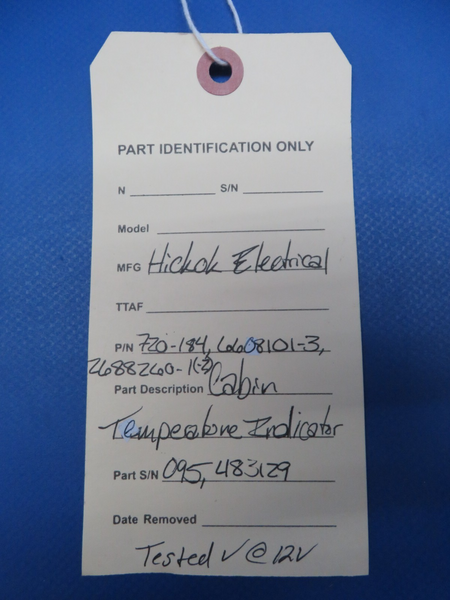 PART IDENTIFICATION ONLY
N S/N
Model
MFG Hickok Electrical
TTAF
P/N 720-184, 6608101-3,
2688260-1(-2)
Part Description Cabin
Temperature Indicator
Part S/N 095, 483129
Date Removed
Tested √ @ 12V